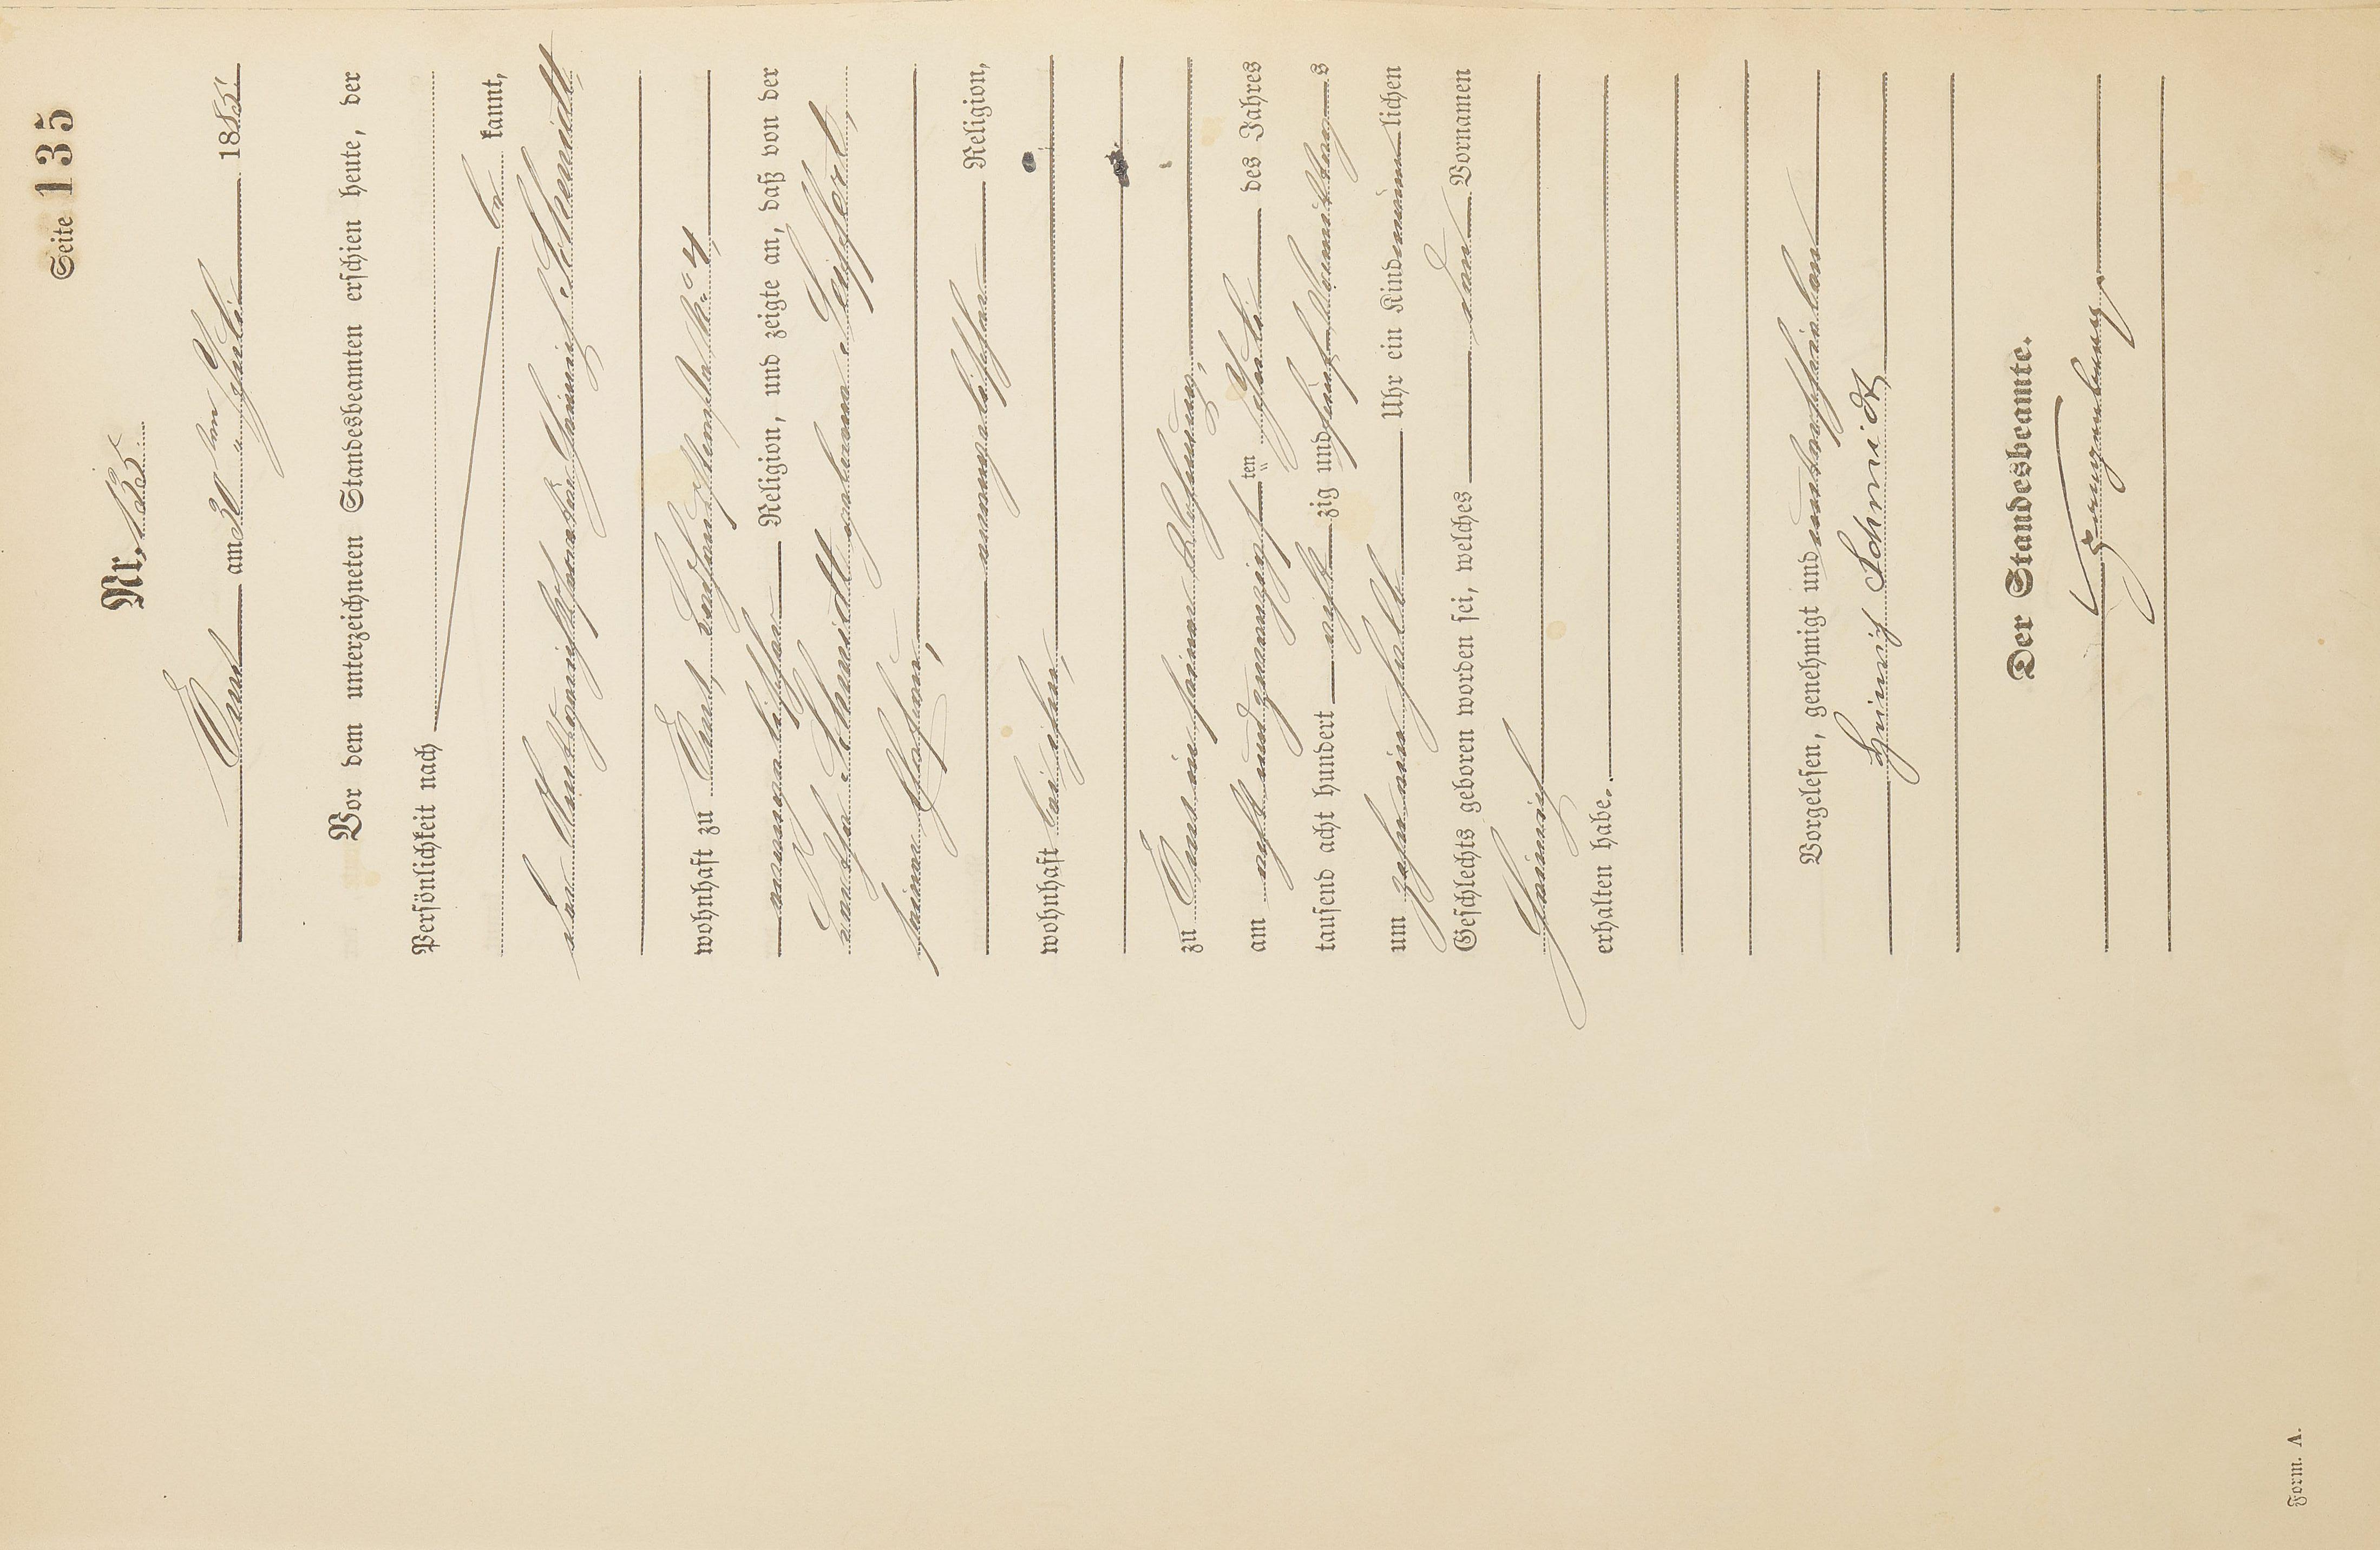 Seite 135
Nr. 135.
Ems am 30ten Juli 1885.
Vor dem unterzeichneten Standesbeamten erschien heute, der
Persönlichkeit nach
be kannt,
der Amtsgerichtssecretär Heinrich Schmidt
wohnhaft zu Ems, No 4,
evangelischer Religion, und zeigte an, daß von der
Schmidt geborene Seiffert,
seiner Ehefrau,
evangelischer Religion,
wohnhaft bei ihm,
zu Ems in seiner Wohnung,
am acht und zwanzigsten Juli des Jahres
tausend acht hundert acht zig und fünf Vormittags
um zehn ein halb Uhr ein Kind männlichen
Geschlechts geboren worden sei, welches den Vornamen
Heinrich
erhalten habe.
Vorgelesen, genehmigt und unterschrieben
Heinrich Schmidt
Der Standesbeamte.
Form. A.